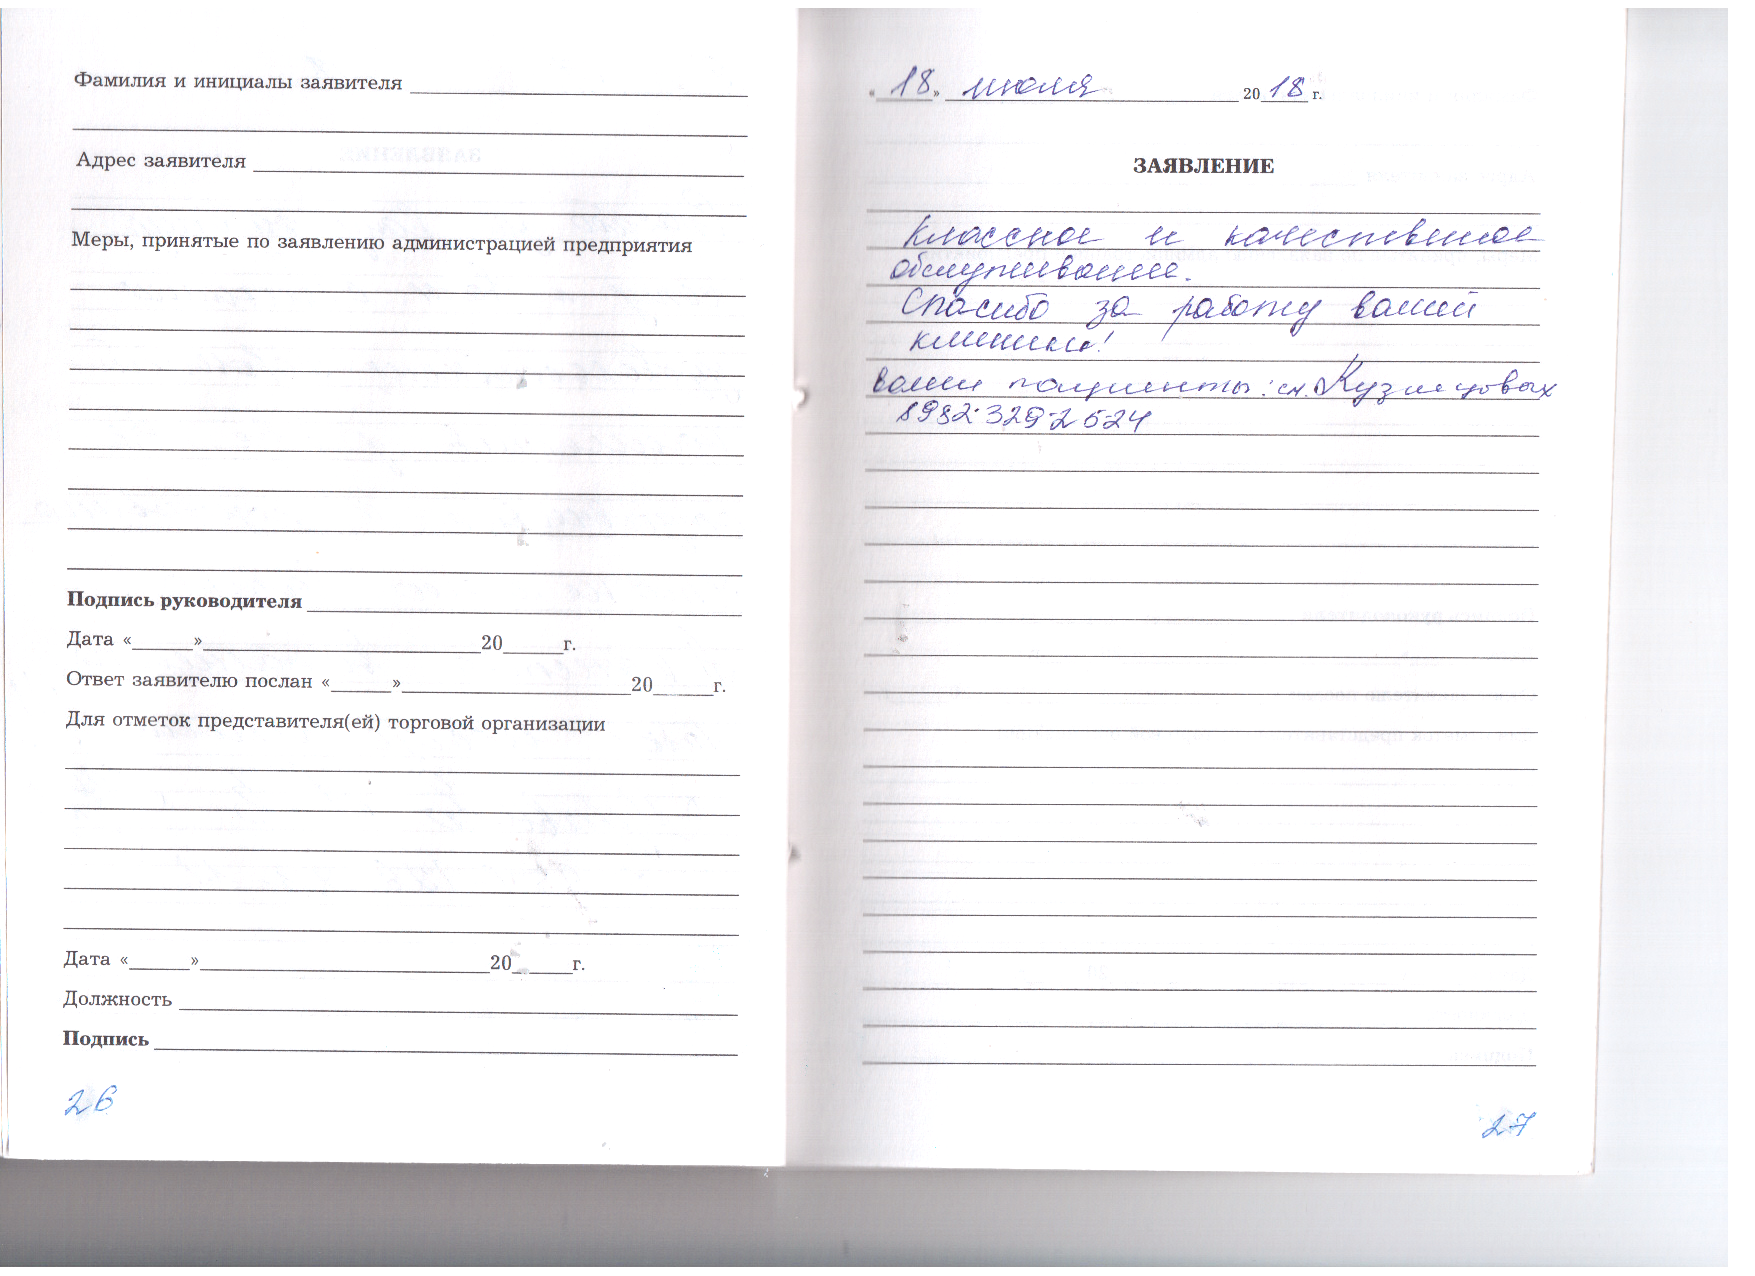 Фамилия и инициалы заявителя
Адрес заявителя
Меры, принятые по заявлению администрацией предприятия
Подпись руководителя
Дата «______»____________20______г.
Ответ заявителю послан «______»____________20______г.
Для отметок представителя(ей) торговой организации
Дата «______»____________20______г.
Должность
Подпись
26
«18» июля 2018 г.
ЗАЯВЛЕНИЕ
Классное и качественное
обслуживание.
Спасибо за работу вашей
клиники!
ваши пациенты: Кузнецовых
89323292524
27